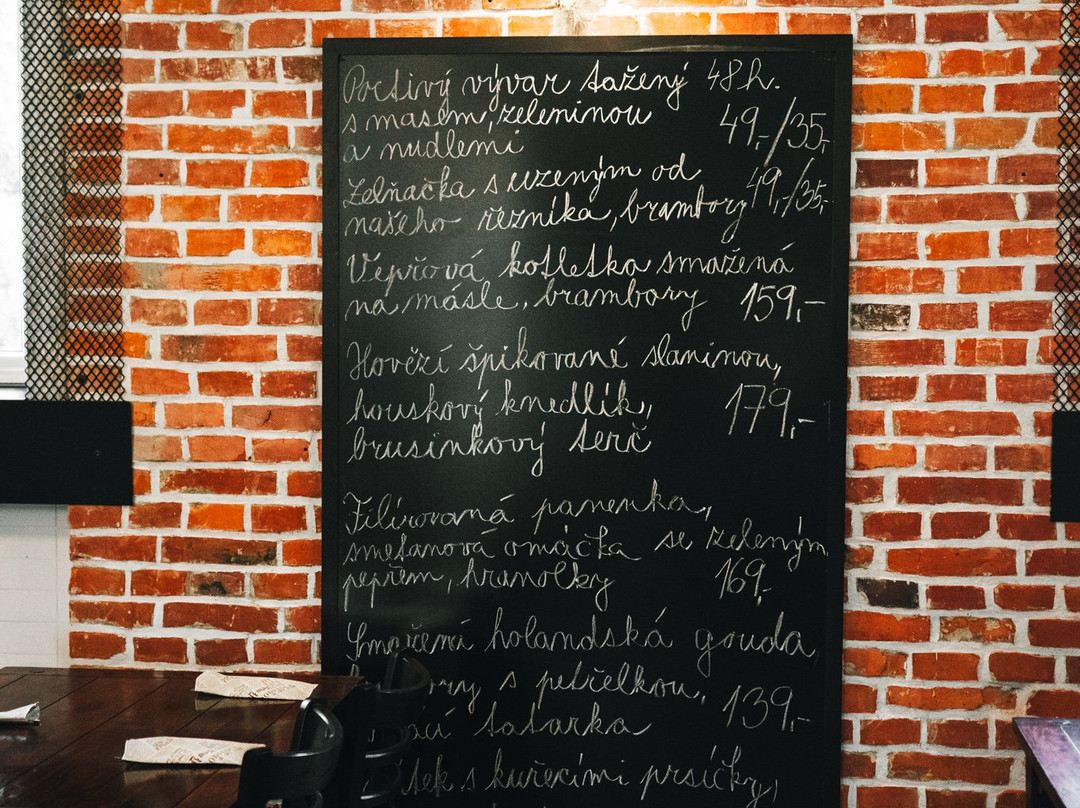 Poctivý vývar tažený 48h.
s masem, zeleninou
a nudlemi 49,-/35,-
Zelňačka s uzeným od
našeho řezníka, brambory 49,-/35,-
Vepřová kotletka smažená
na másle, brambory 159,-
Hovězí špikované slaninou,
houskový knedlík, 179,-
brusinkový terč
Filírovaná panenka,
smetanová omáčka se zeleným
pepřem, hranolky 169,-
Smažená holandská gouda,
s petrželkou, 139,-
tatarka
s kuřecími prsíčky,